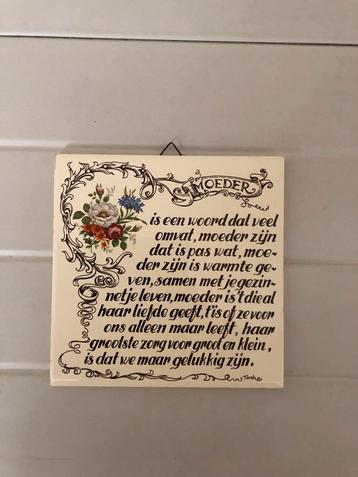 MOEDER
is een woord dat veel
omvat, moeder zijn
dat is pas wat, moe-
der zijn is warmte ge-
ven, samen met je gezin-
netje leven, moeder is 't die al
haar liefde geeft, t'is of ze voor
ons alleen maar leeft, haar
grootste zorg voor groot en klein,
is dat we maar gelukkig zijn.